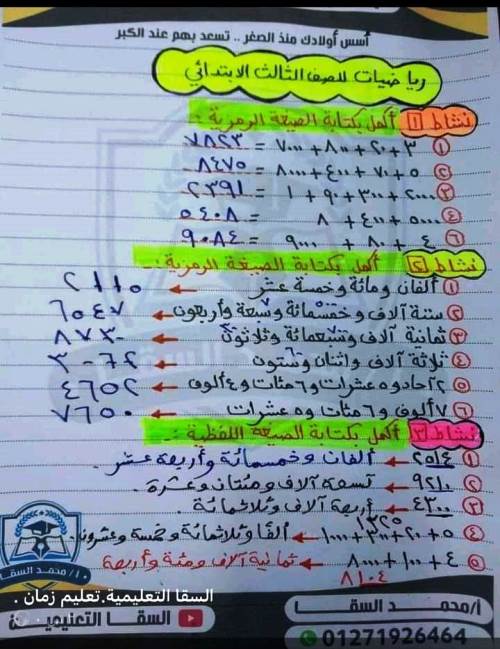 أسس أولادك منذ الصغر .. تسعد بهم عند الكبر
رياضيات للصف الثالث الابتدائي
نشاط ١ أكمل بكتابة الصيغة الرمزية :
١ ٣ + ٢٠ + ٨٠٠ + ٧٠٠٠ = ٧٨٢٣
٢ ٥ + ٧٠ + ٤٠٠ + ٨٠٠٠ = ٨٤٧٥
٣ ٢٠٠٠ + ٣٠٠ + ٩٠ + ١ = ٢٣٩١
٤ ٥٠٠٠ + ٤٠٠ + ٨ = ٥٤٠٨
٦ ٤ + ٨٠ + ٩٠٠٠ = ٩٠٨٤
نشاط ٢ أكمل بكتابة الصيغة الرمزية :
١ ألفان ومائة وخمسة عشر ← ٢١١٥
٢ ستة آلاف وخمسمائة وسبعة وأربعون ←
٣ ثمانية آلاف وسبعمائة وثلاثون ← ٨٧٣٠
٤ ثلاثة آلاف واثنان وستون ← ٣٠٦٢
٥ ٢ آحاد و ٥ عشرات و ٦ مئات و ٤ ألوف ← ٤٦٥٢
٦ ٧ ألوف و ٦ مئات و ٥ عشرات ← ٧٦٥٠
نشاط ٣ أكمل بكتابة الصيغة اللفظية :
١ ٢٥١٤ ← ألفان وخمسمائة وأربعة عشر .
٢ ٩٢١٠ ← تسعة آلاف ومئتان وعشرة .
٣ ٤٣٠٠ ← أربعة آلاف وثلاثمائة .
١٣٢٥
٤ ٥ + ٢٠ + ٣٠٠ + ١٠٠٠ ← ألفًا وثلاثمائة وخمسة وعشرون .
٥ ٤ + ١٠٠ + ٨٠٠٠ ← ثمانية آلاف ومئة وأربعة
٨١٠٤
أ/ محمد السقا
السقا التعليمية.تعليم زمان .
أ/محمد السقا
السقا التعليمية
01271926464